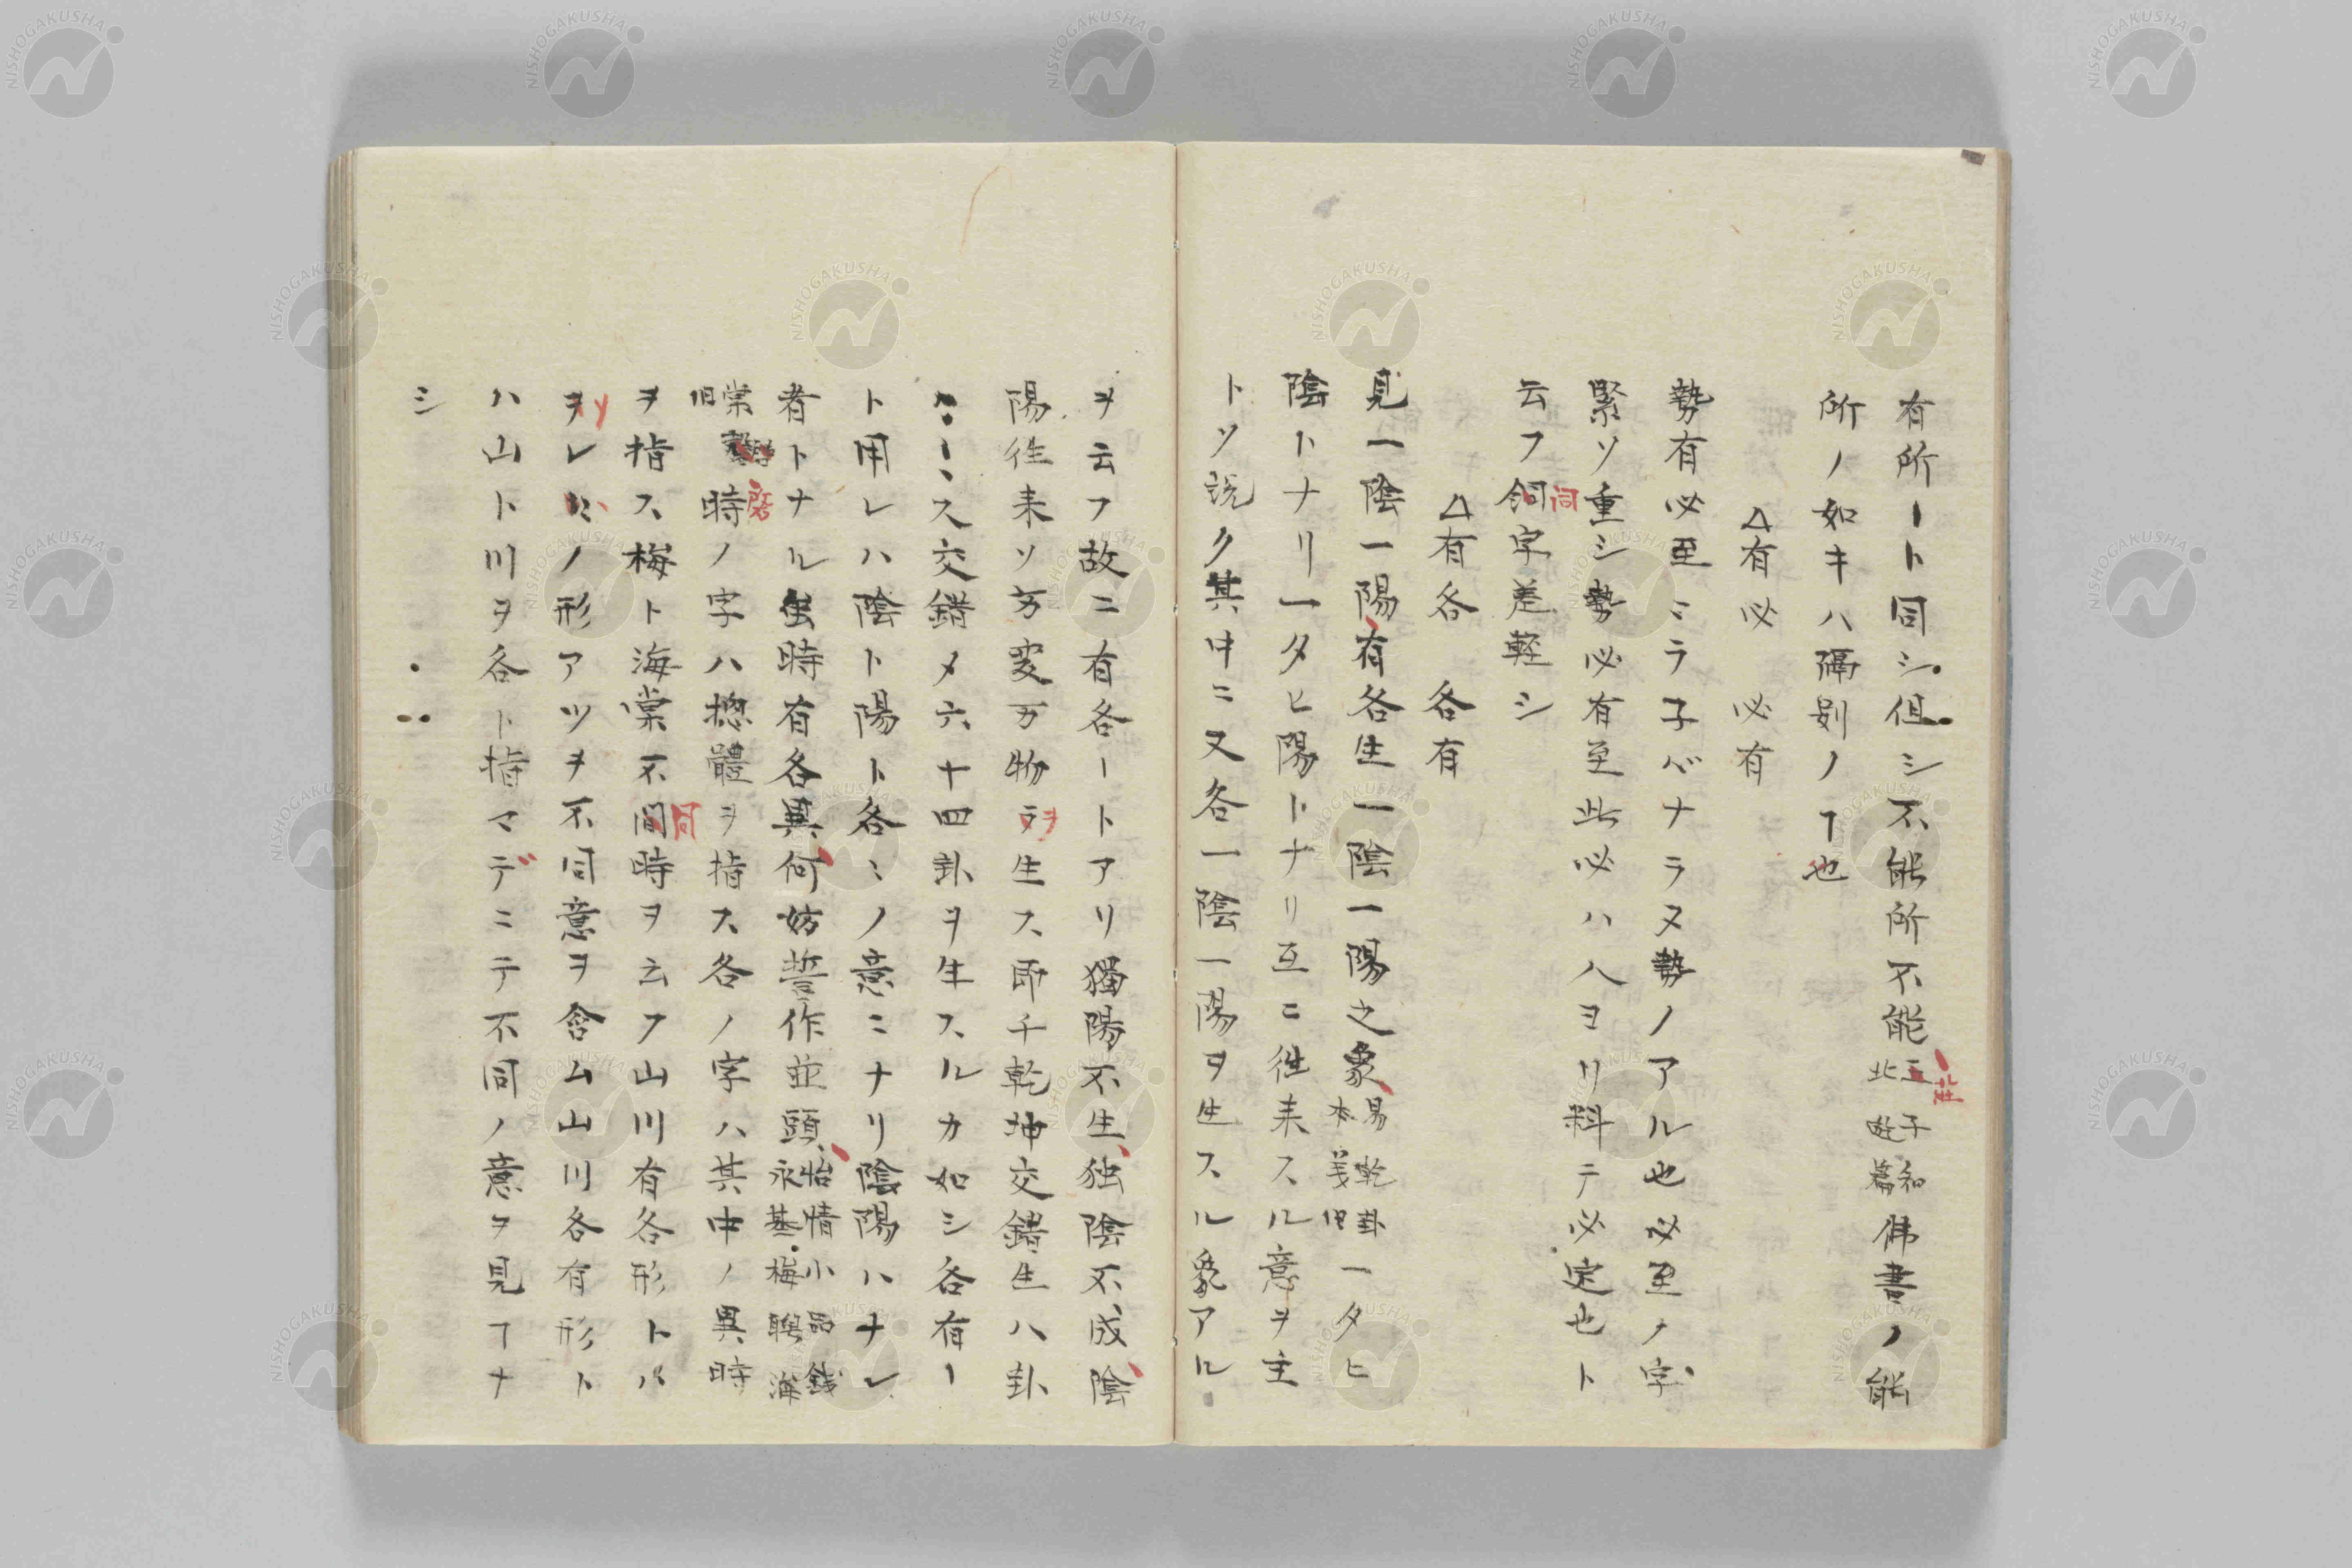 有所ートト同シ但シ不能所不能王子和北畝篇佛書ノ能
所ノ如キハ隔別ノヿ也
△有必　必有
勢有必至ミラ子バナラヌ勢ノアル也必至ノ字
緊ソ重シ勢必有至此必ハ八ヨリ料テ必定也ト
云フ詞字差軽シ
△有各　各有
見一陰一陽有各生一陰一陽之象易乾卦本義但一タヒ
陰トナリ一タヒ陽トナリ互ニ徃来スル意ヲ主
トソ説ク其中ニ又各一陰一陽ヲ生スル象アル
ヲ云フ故ニ有各ートアリ獨陽不生独陰不成陰
陽徃来ソ万変万物ヲ生ス即千乾坤交錯生ハ卦
ス交錯メ六十四卦ヲ生スルカ如シ各有ー
ト用レハ陰ト陽ト各ミノ意ニナリ陰陽ハナレ
者トナル虫時有各異何妨誓作並頭怡情小品銭永基梅聘海
棠時ノ字ハ揔體ヲ指ス各ノ字ハ其中ノ異時
ヲ指ス梅ト海棠不同時ヲ云フ山川有各形トハ
ノ形アツヲ不同意ヲ含ム山川各有形ト
ハ山ト川ヲ各ト指マデニテ不同ノ意ヲ見ヿナ
シ